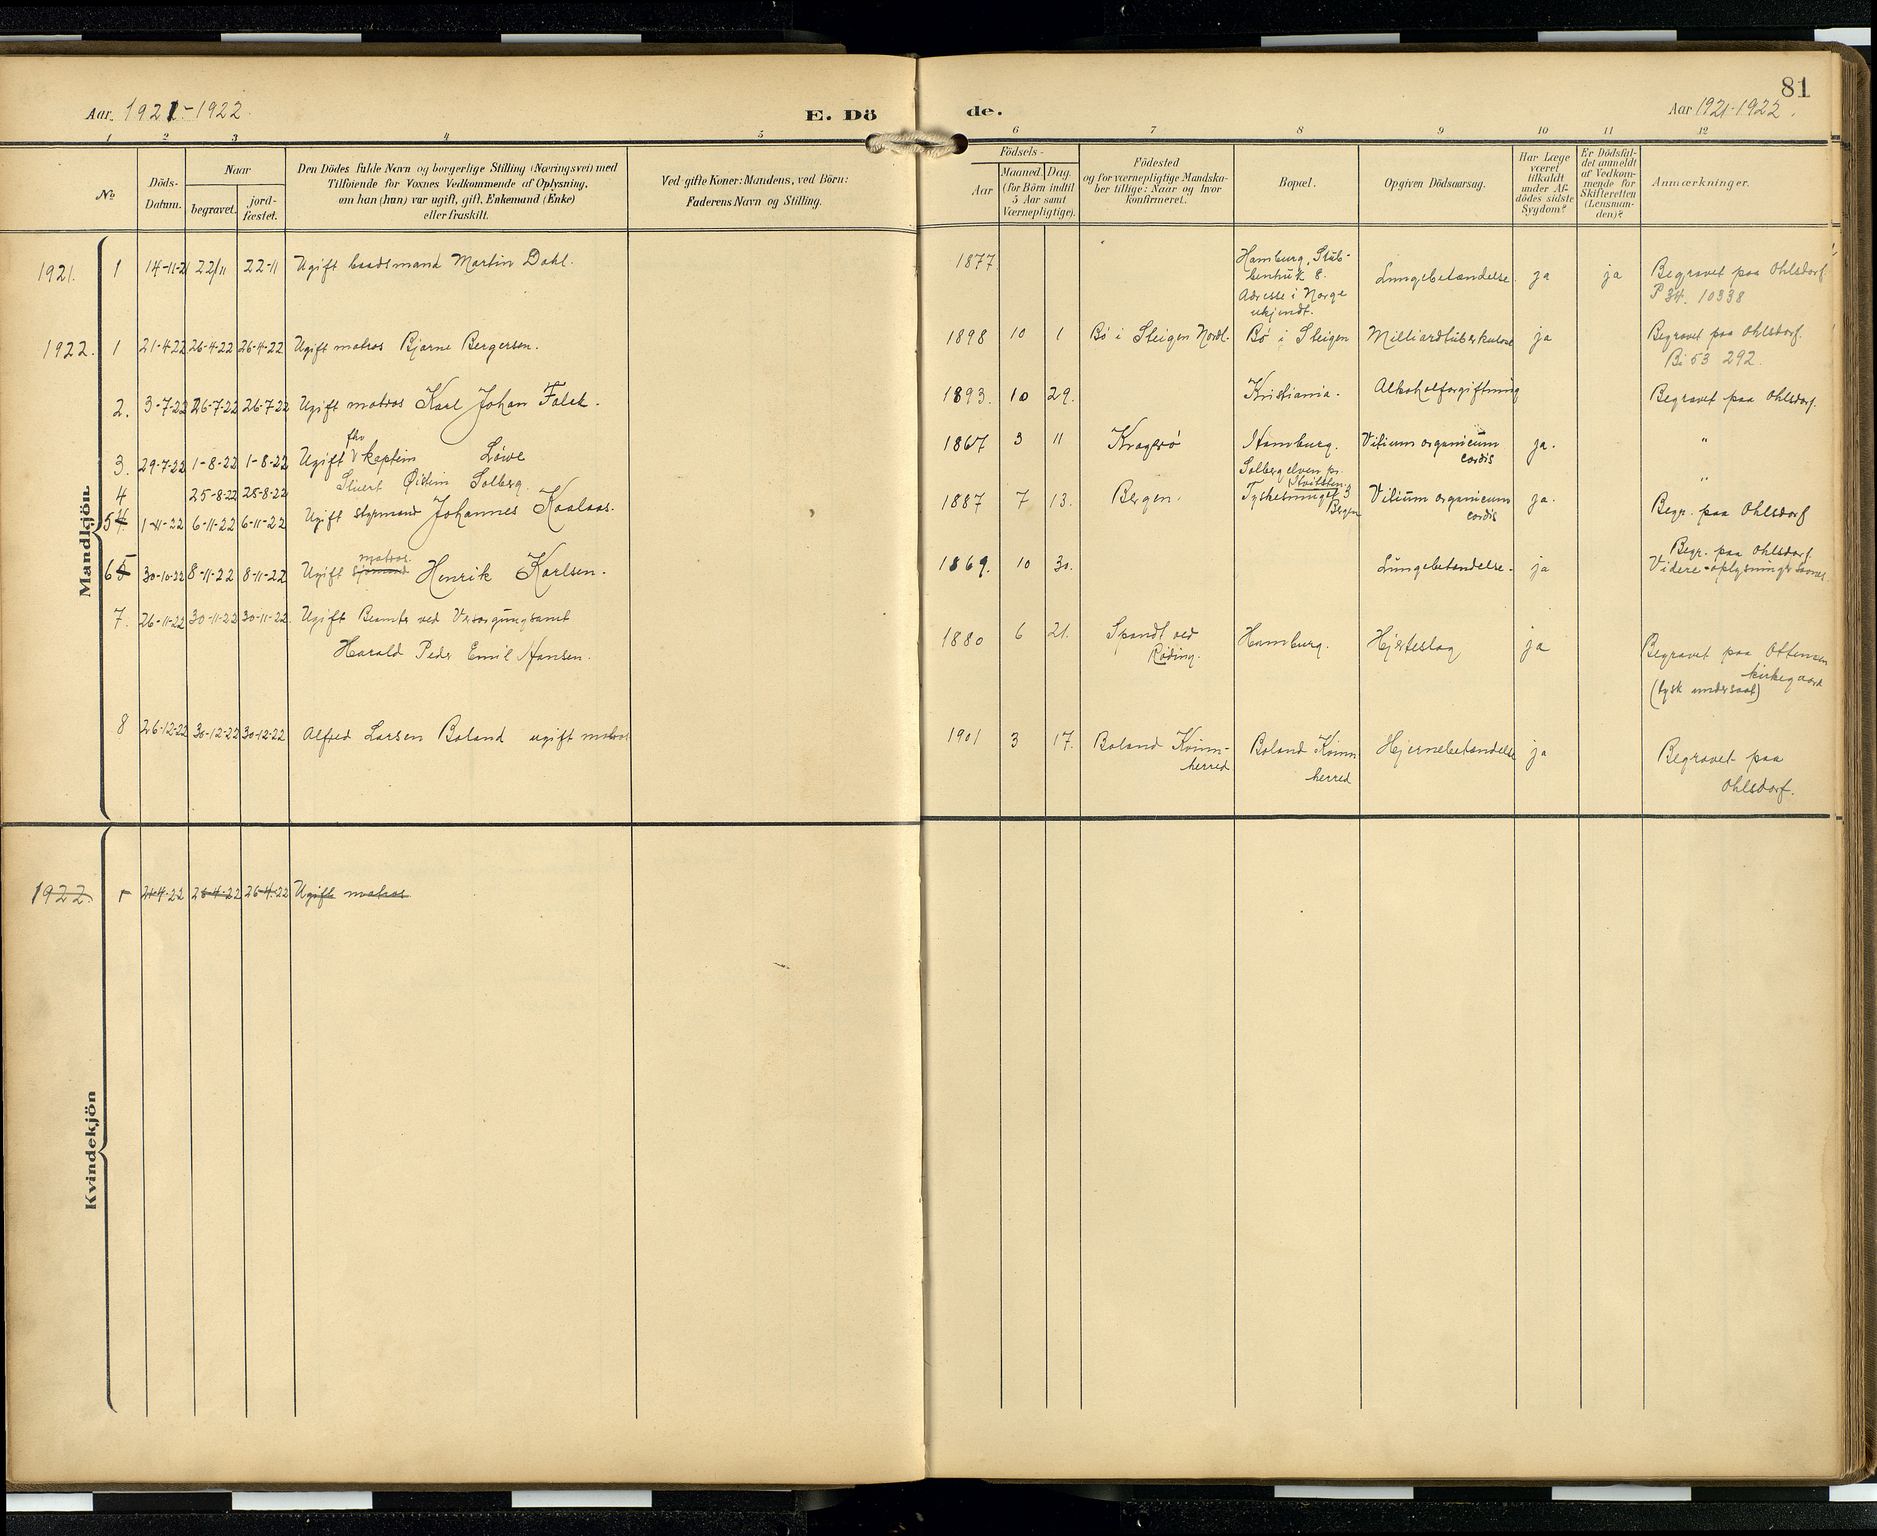 81
Aar 1921-1922.
E. Dö
de.
Aar 1921-1922.
1 2 3 4 5 6 7 8 9 10 11 12
No
Döds-
Datum.
Naar
begravet.
jord-
fæstet.
Den Dödes fulde Navn og borgerlige Stilling (Næringsvei) med
Tilföiende for Voxnes Vedkommende af Oplysning,
om han (hun) var ugift, gift, Enkemand (Enke)
eller fraskilt.
Ved gifte Koner: Mandens, ved Börn:
Faderens Navn og Stilling.
Födsels-
Aar
Maaned. Dag.
(for Börn indtil
5 Aar samt
Værnepligtige).
Födested
og for værnepligtige Mandska-
ber tillige: Naar og hvor
konfirmeret.
Bopæl.
Opgiven Dödsaarsag.
Har Læge
været
tilkaldt
under Af-
dödes sidste
Sygdom?
Er Dödsfal-
det anmeldt
af Vedkom-
mende for
Skifteretten
(Lensman-
den)?
Anmærkninger.
Mandkjön.
1921. 1 14-11-21 22/11 22-11 Ugift baadsmand Martin Dahl. 1877. Hamburg, Stub-
benhuk 8.
Adresse i Norge
ukjendt.
Lungebetændelse. ja ja Begravet paa Ohlsdorf
P 34. 10338
1922. 1 21-4-22 26-4-22 26-4-22 Ugift matros Bjarne Bergersen. 1898 10 1 Bö i Steigen Nordl. Bö i Steigen Milliardtuberkulose ja Begravet paa Ohlsdorf.
Bi 53 292.
2. 3-7-22 26-7-22 26-7-22 Ugift matros Karl Johan Falck. 1893. 10 29. Kristiania. Alkoholforgiftning Begravet paa Ohlsdorf.
3. 29-7-22 1-8-22 1-8-22 Ugift fhv kaptein Löwe 1867 3 11 Kragerö Hamburg. Vitium organicum
cordis ja. "
4 25-8-22 25-8-22 Stuert Öistein Solberg. Solbergelven pr.
"
5 4. 1-11-22 6-11-22 6-11-22 Ugift styrmand Johannes Kaalaas. 1887 7 13. Bergen. Tyskesmuget 3
Bergen
Vitium organicum
cordis ja. Begr. paa Ohlsdorf
6 5 30-10-22 8-11-22 8-11-22 Ugift sjömand matros Henrik Karlsen. 1869. 10 30. Lungebetændelse. ja Begr. paa Ohlsdorf
Videre oplysninger savnes.
7. 26-11-22 30-11-22 30-11-22. Ugift Beamter ved Versorgungsamt
Harald Peder Emil Hansen. 1880 6 21. Spandt ved
Röding. Hamburg. Hjerteslag ja Begravet paa Ottensen
kirkegaard
(tysk undersaat)
8 26-12-22 30-12-22 30-12-22 Alfred Larsen Boland ugift matros 1901 3 17. Boland Kvinn-
herred Boland Kvinn
herred Hjernebetændelse ja Begravet paa
Ohlsdorf.
Kvindekjön
1922. 1 21-4-22 26-4-22 26-4-22 Ugift matros